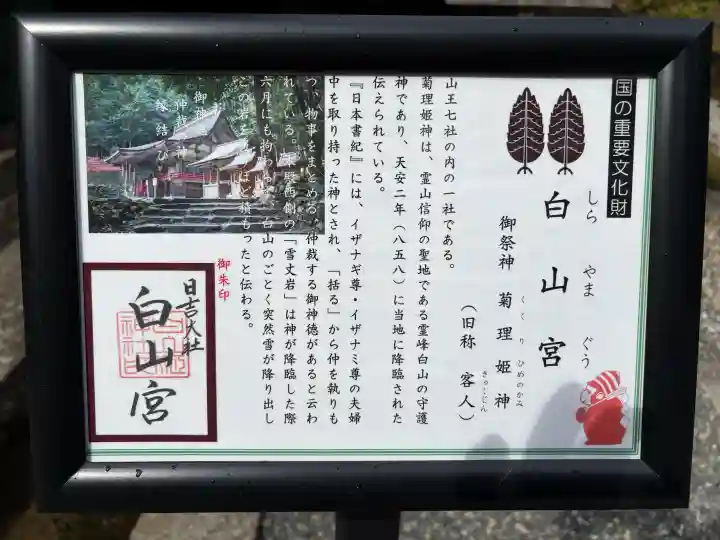 国の重要文化財
白山宮
しらやまぐう
御祭神 菊理姫神
くくりひめのかみ
（旧称 客人）
きゃくじん
山王七社の内の一社である。
菊理姫神は、霊山信仰の聖地である霊峰白山の守護
神であり、天安二年（八五八）に当地に降臨された
伝えられている。
『日本書紀』には、イザナギ尊・イザナミ尊の夫婦
中を取り持った神とされ、「括る」から仲を執りも
つ、物事をまとめる、仲裁する御神徳があると云わ
れている。
西側の「雪丈岩」は神が降臨した際
六月にも拘わ
白山のごとく突然雪が降り出し
この岩を
ほど積もったと伝わる。
御神
仲裁
縁結び
御朱印
日吉大社
白山宮